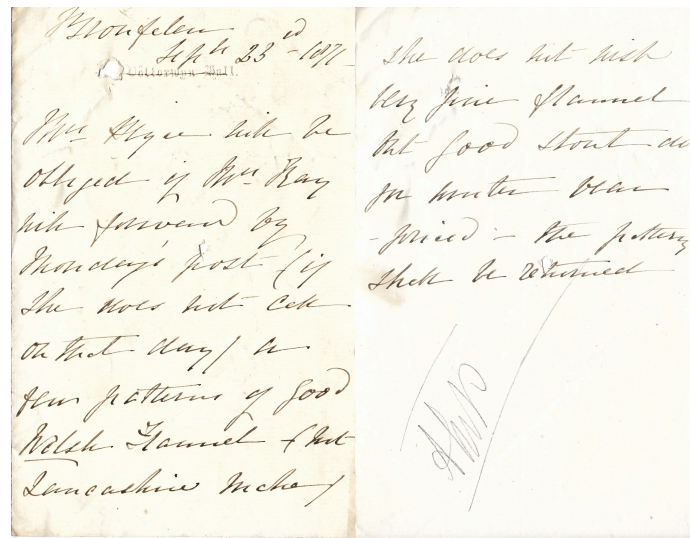 Bronfelen
Sept 23rd - 1871
Mrs Pryce will be
obliged if Mrs Kay
will forward by
Monday's post (if
she does not call
on that day) a
few patterns of good
Welsh Flannel - (not
Lancashire make)
She does not wish
very fine flannel
but good stout do
for winter wear
- priced - the patterns
shall be returned